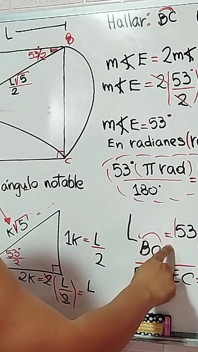 L
Hallar: BC
B
53°/2
L√5/2
m∡E = 2m∡
m∡E = 2(53°/2)
m∡E = 53°
C
En radianes(r
53°(π rad)/180°
ángulo notable
K√5
1K = L/2
53°/2
2K = 2(L/2) = L
L BC = 53
EC =